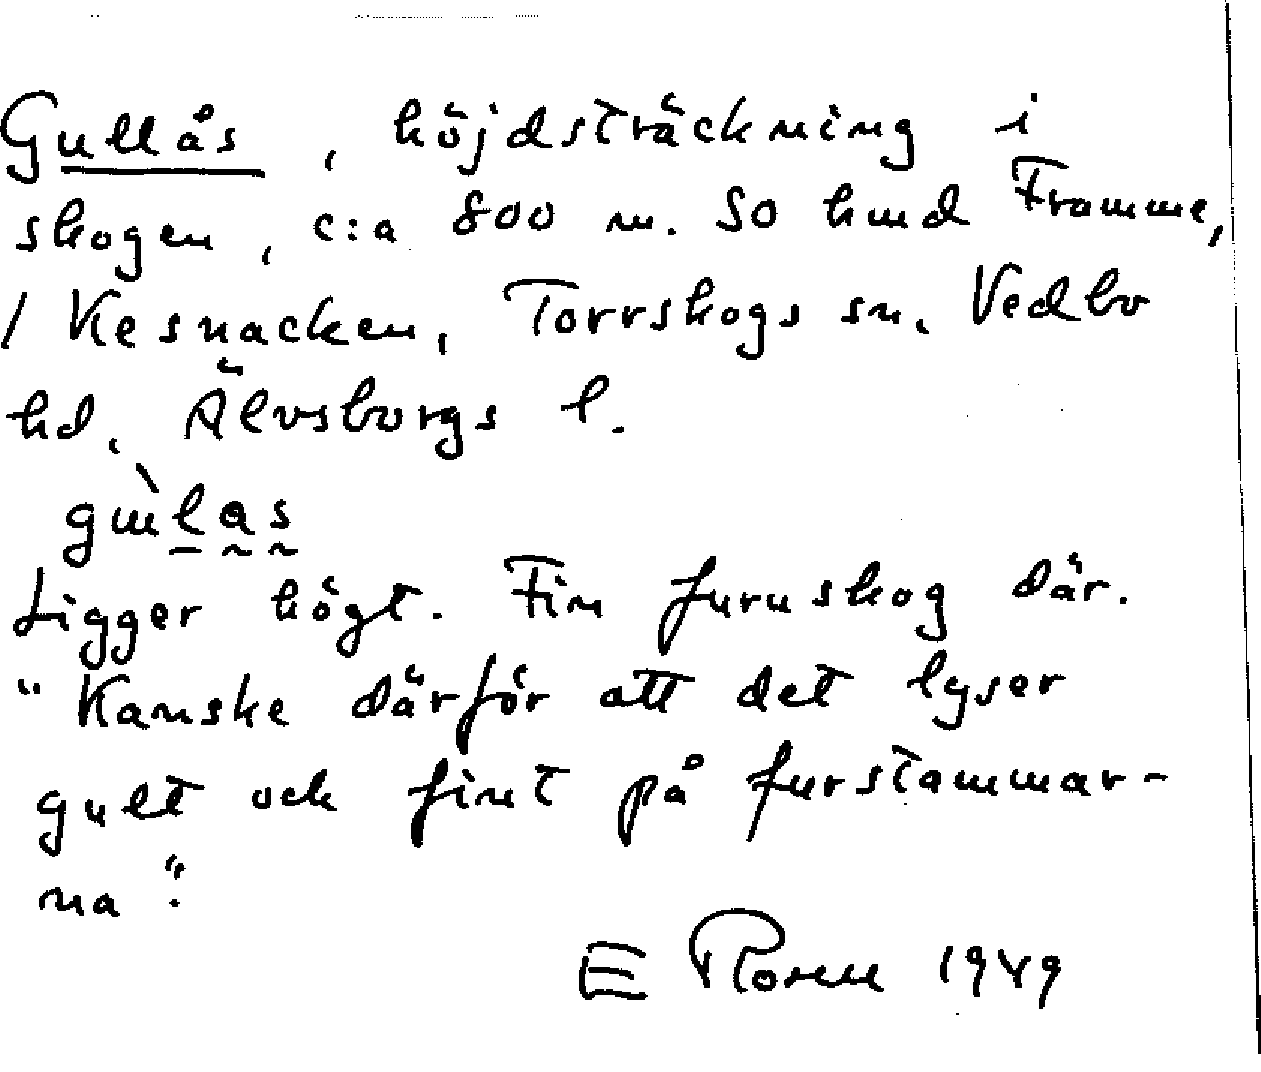 Gullås, höjdsträckning i
skogen, c:a 800 m. SO hmd Framme,
/ Kesnacken, Torrskogs sn. Vedbo
hd, Älvsborgs l.
Ligger högt. Fin furuskog där.
"Kanske därför att det lyser
gult och fint på furstammar-
na".
E Rosell 1949